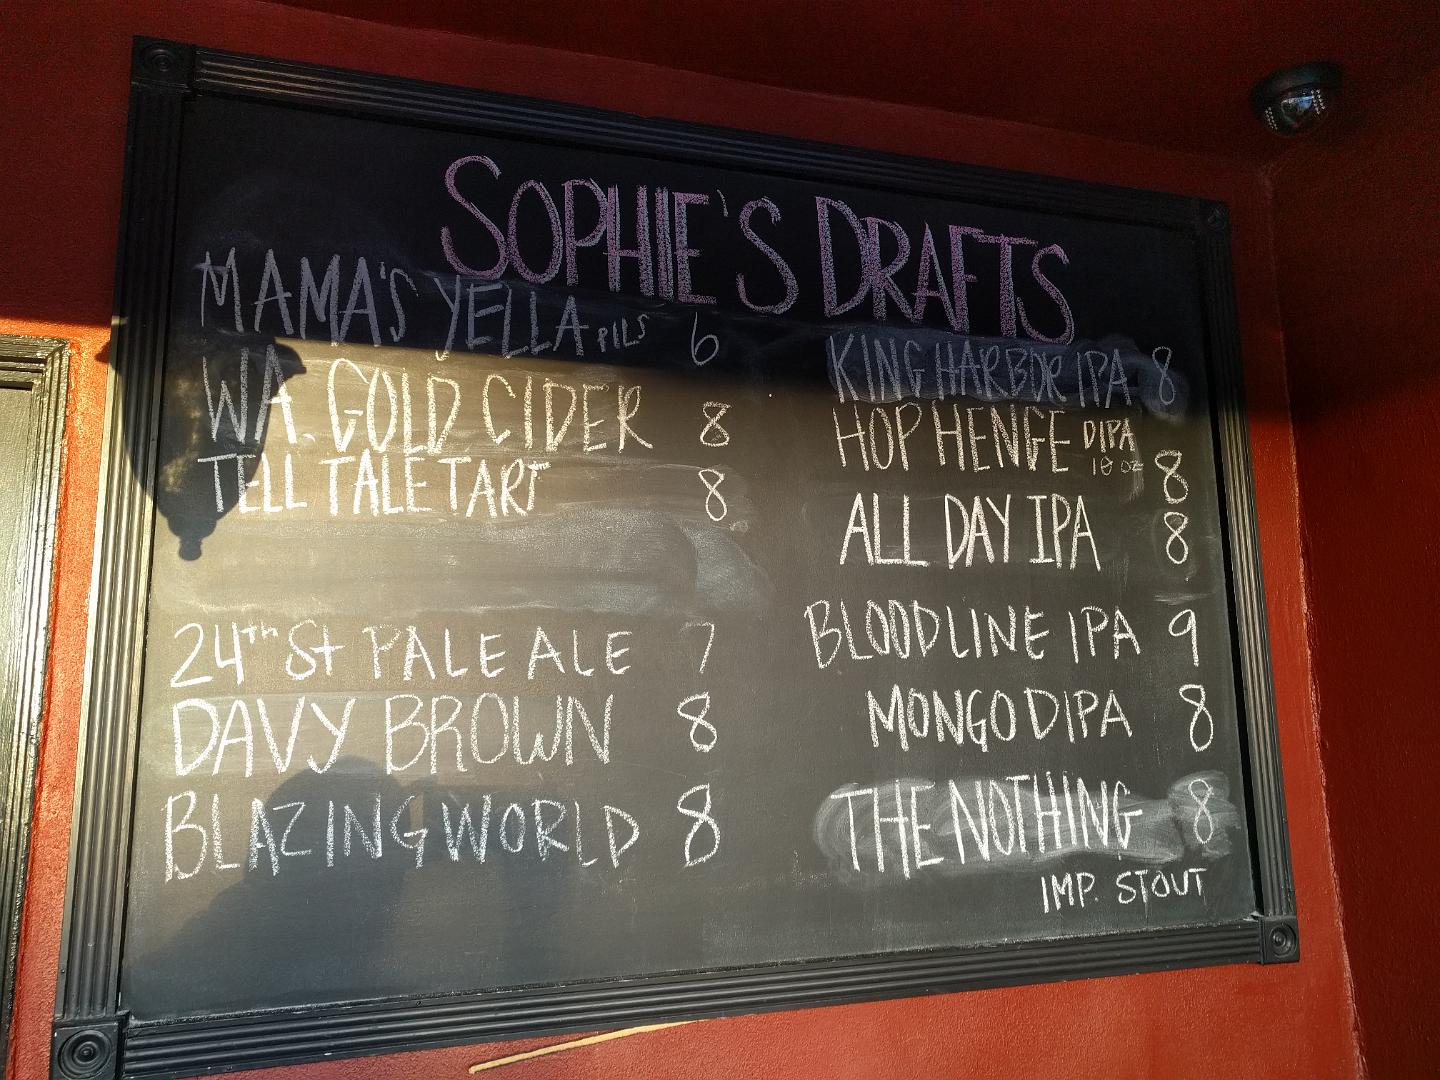 SOPHIE'S DRAFTS
MAMA'S YELLA PILS 6
WA. GOLD CIDER 8
TELL TALE TART 8
24th St PALE ALE 7
DAVY BROWN 8
BLAZING WORLD 8
KING HARBOR IPA 8
HOP HENGE DIPA 8
10 OZ
ALL DAY IPA 8
BLOODLINE IPA 9
MONGO DIPA 8
THE NOTHING 8
IMP. STOUT